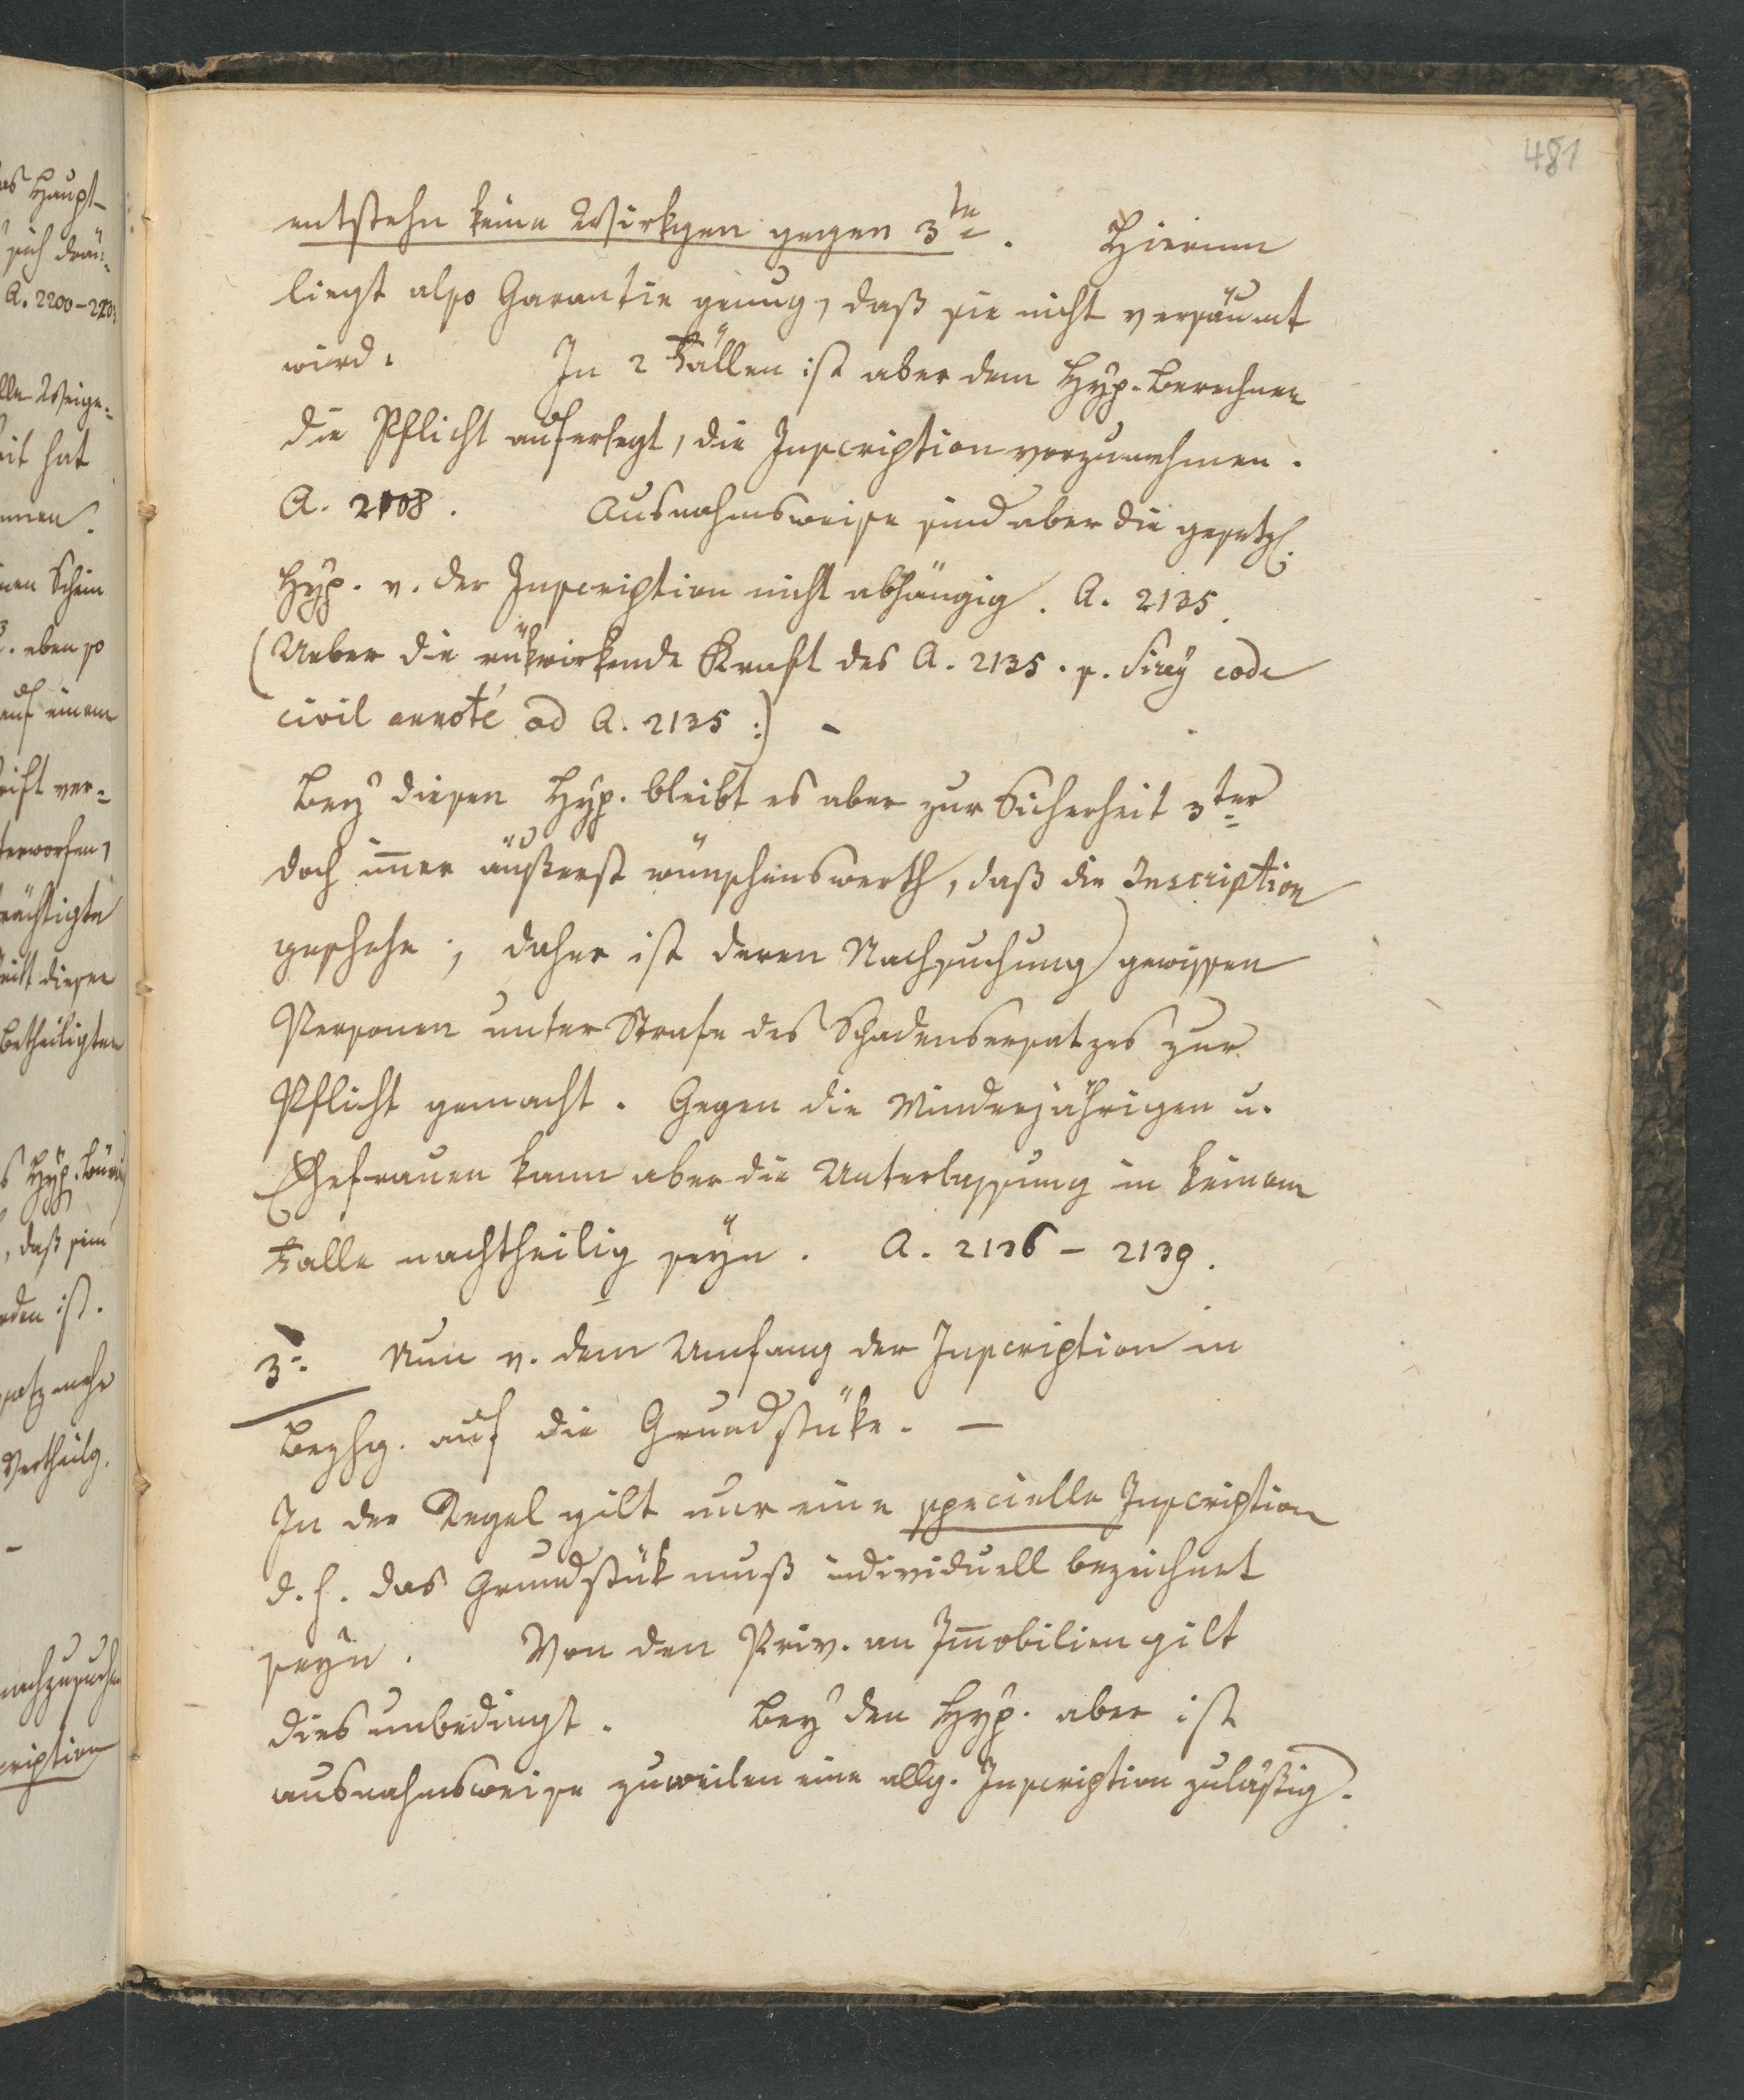 481
entstehn keine Wirkgen gegen 3te. Hierinn
liegt also Garantie genug, daß sie nicht versäumt
wird. In 2 Fällen ist aber dem Hyp. Bewahrer
die Pflicht auferlegt, die Inscription vorzunehmen.
A. 2108. Ausnahmsweise sind aber die gesetzl.
Hyp. v. der Inscription nicht abhängig. A. 2135.
(Ueber die rükwirkende Kraft des A. 2135. s. Sirey code
civil annoté ad A. 2135:) -
Bey diesen Hyp. bleibt es aber zur Sicherheit 3ter
doch immer äußerst wünschenswerth, daß die Inscription
geschehe; daher ist deren Nachsuchung gewissen
Personen unter Strafe des Schadensersatzes zur
Pflicht gemacht. Gegen die Minderjährigen u.
Ehefrauen kann aber die Unterlassung in keinem
Falle nachtheilig seyn. A. 2136 - 2139.
3. Nun v. dem Umfang der Inscription in
Bezhg. auf die Grundstüke. -
In der Regel gilt nur eine specielle Inscription
d. h. das Grundstük muß individuell bezeichnet
seyn. Von den Priv. an Immobilien gilt
dies unbedingt. Bey den Hyp. aber ist
ausnahmsweise zuweilen eine allg. Inscription zuläßig.